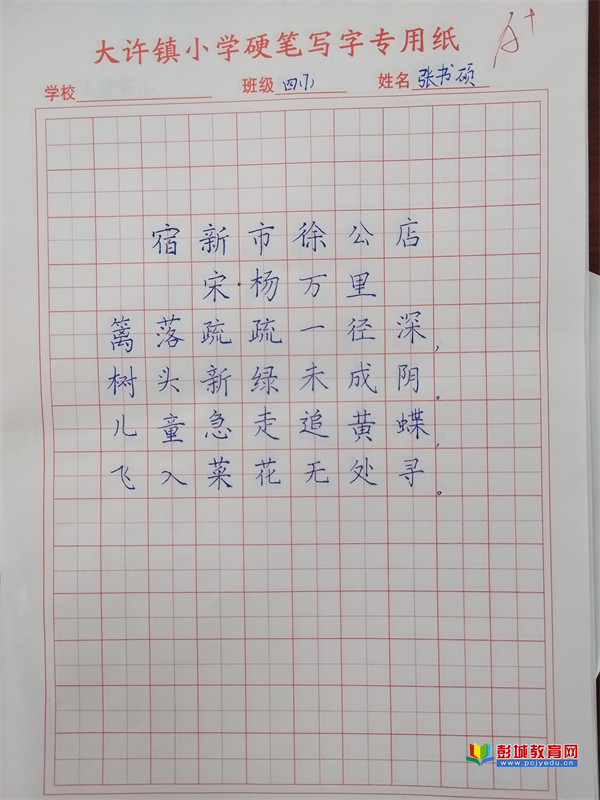 大许镇小学硬笔写字专用纸
A+
学校 班级 四(1) 姓名 张书硕
宿新市徐公店
宋·杨万里
篱落疏疏一径深，
树头新绿未成阴。
儿童急走追黄蝶，
飞入菜花无处寻。
彭城教育网
www.pcjyedu.cn